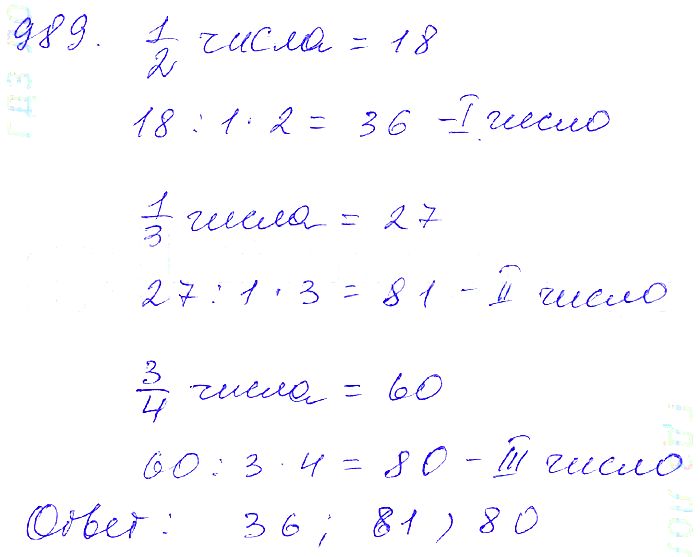 989. 1/2 числа = 18
18 : 1 · 2 = 36 – I число
1/3 числа = 27
27 : 1 · 3 = 81 – II число
3/4 числа = 60
60 : 3 · 4 = 80 – III число
Ответ: 36; 81, 80